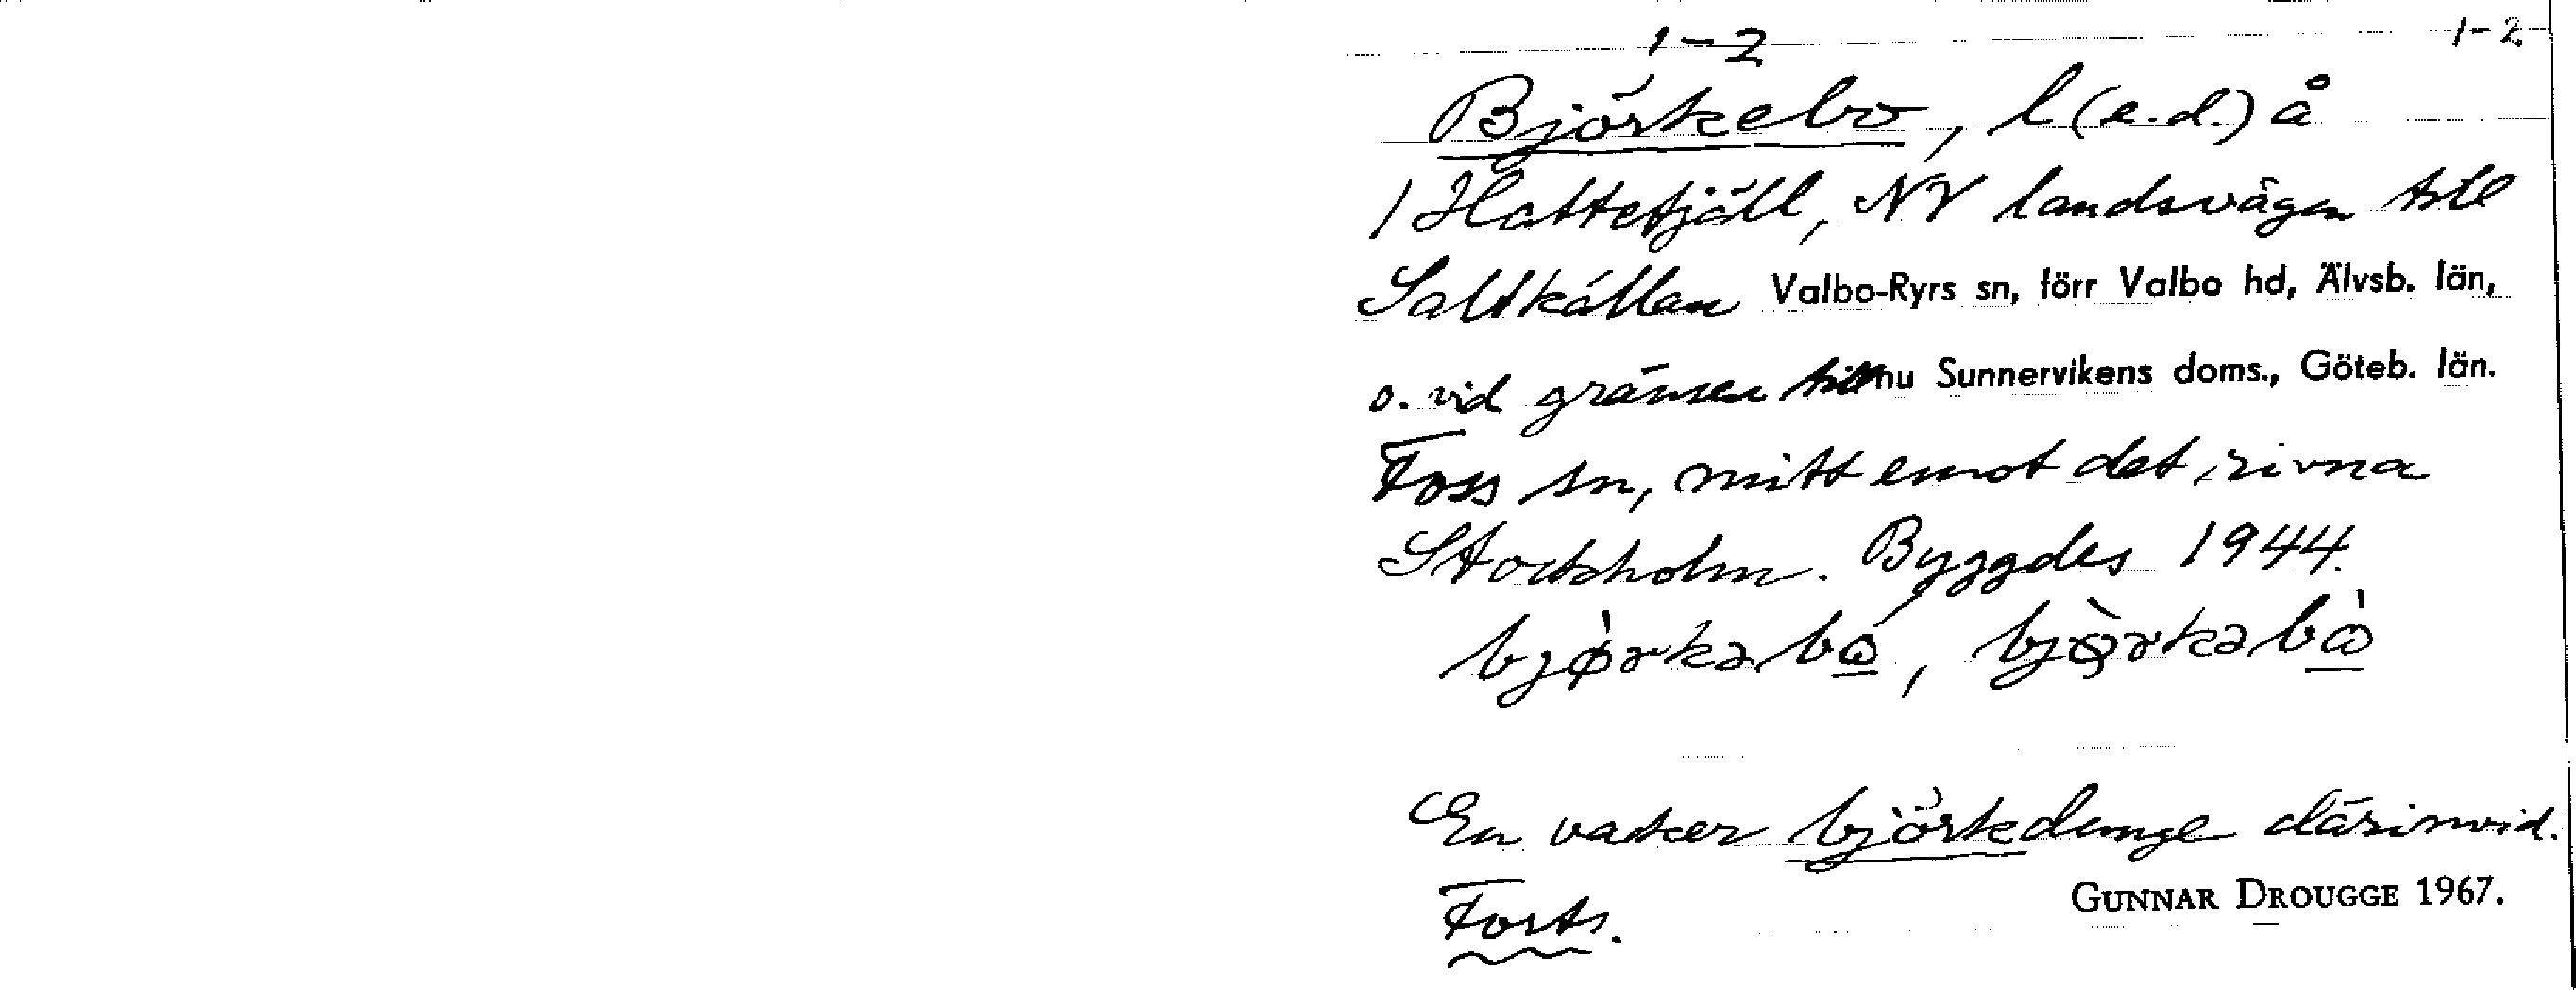 1-2 1-2
Björkebo, l (e.d.) å
1 Hattefjäll, NV landsvägen till
Saltkällan Valbo-Ryrs sn, förr Valbo hd, Älvsb. län,
o. vid gränsen till nu Sunnervikens doms., Göteb. län.
Foss sn, mitt emot det rivna
Stockholm. Byggdes 1944.
En vacker björkdunge därinvid.
Forts. GUNNAR DROUGGE 1967.